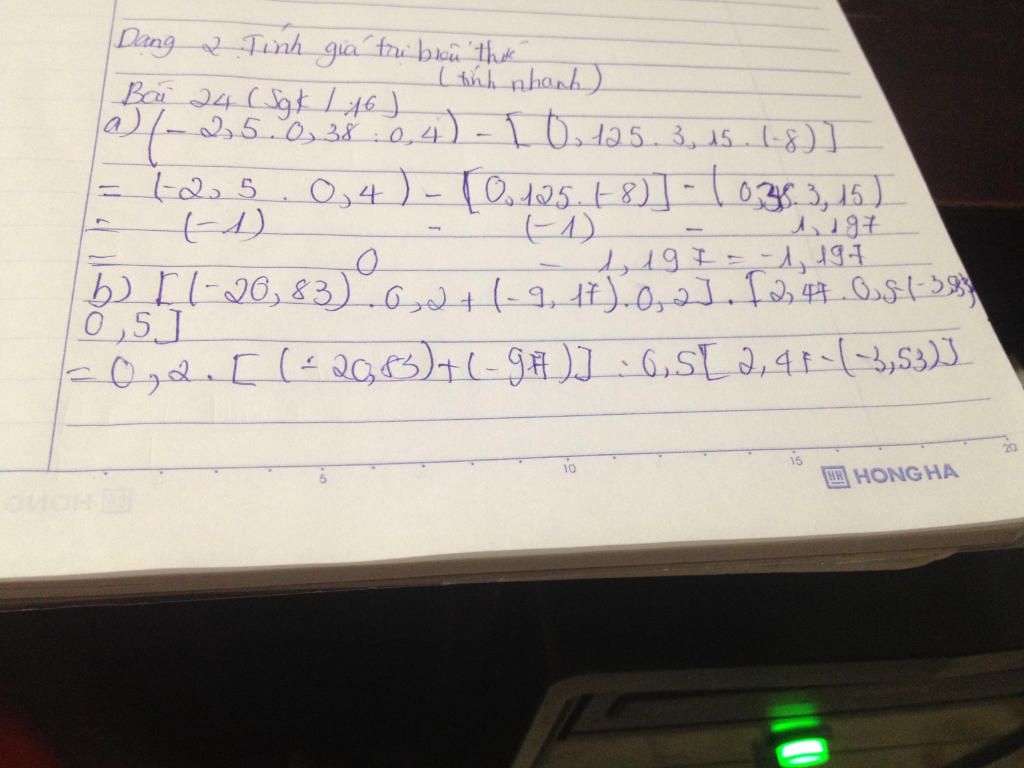 Dạng 2 Tính giá trị biểu thức
(tính nhanh)
Bài 24 (Sgk / 16)
a) (- 2,5 . 0,38 . 0,4) - [0,125 . 3,15 . (-8)]
= (-2,5 . 0,4) - [0,125. (-8)] - (0,38. 3,15)
= (-1) - (-1) - 1,197
= 0 - 1,197 = -1,197
b) [(-20,83) . 0,2 + (-9,17) . 0,2] : [2,47 . 0,5-(-3,53)
0,5]
= 0,2 . [(-20,83)+(-9,17)] : 0,5[2,47-(-3,53)]
5 10 15 20
HH HONG HA